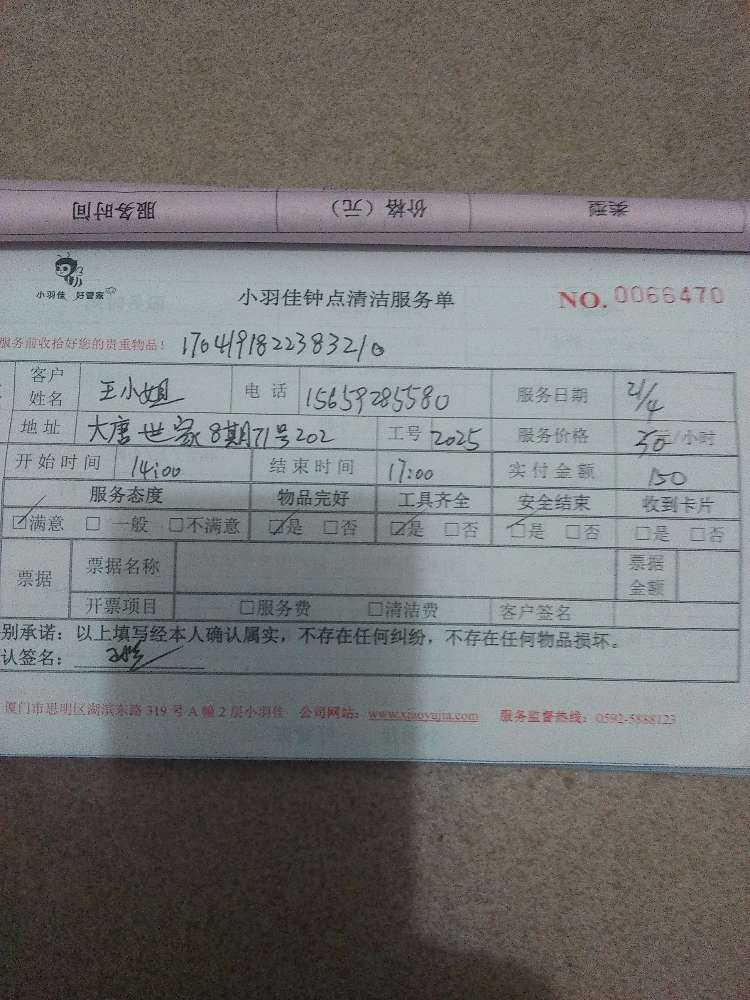 服务时间 价格（元） 类型
小羽佳 好管家
小羽佳钟点清洁服务单 NO. 0066470
服务前收拾好您的贵重物品！ 1704191822383210
客户姓名 王小姐 电话 15659285580 服务日期 21/4
地址 大唐世家8期71号202 工号 2025 服务价格 50元/小时
开始时间 14:00 结束时间 17:00 实付金额 150
服务态度 物品完好 工具齐全 安全结束 收到卡片
☑满意 □一般 □不满意 ☑是 □否 ☑是 □否 ☑是 □否 □是 □否
票据 票据名称 票据金额
开票项目 □服务费 □清洁费 客户签名
别承诺：以上填写经本人确认属实，不存在任何纠纷，不存在任何物品损坏。
认签名：
厦门市思明区湖滨东路319号A幢2层小羽佳 公司网站：www.xiaoyujia.com 服务监督热线：0592-5888123